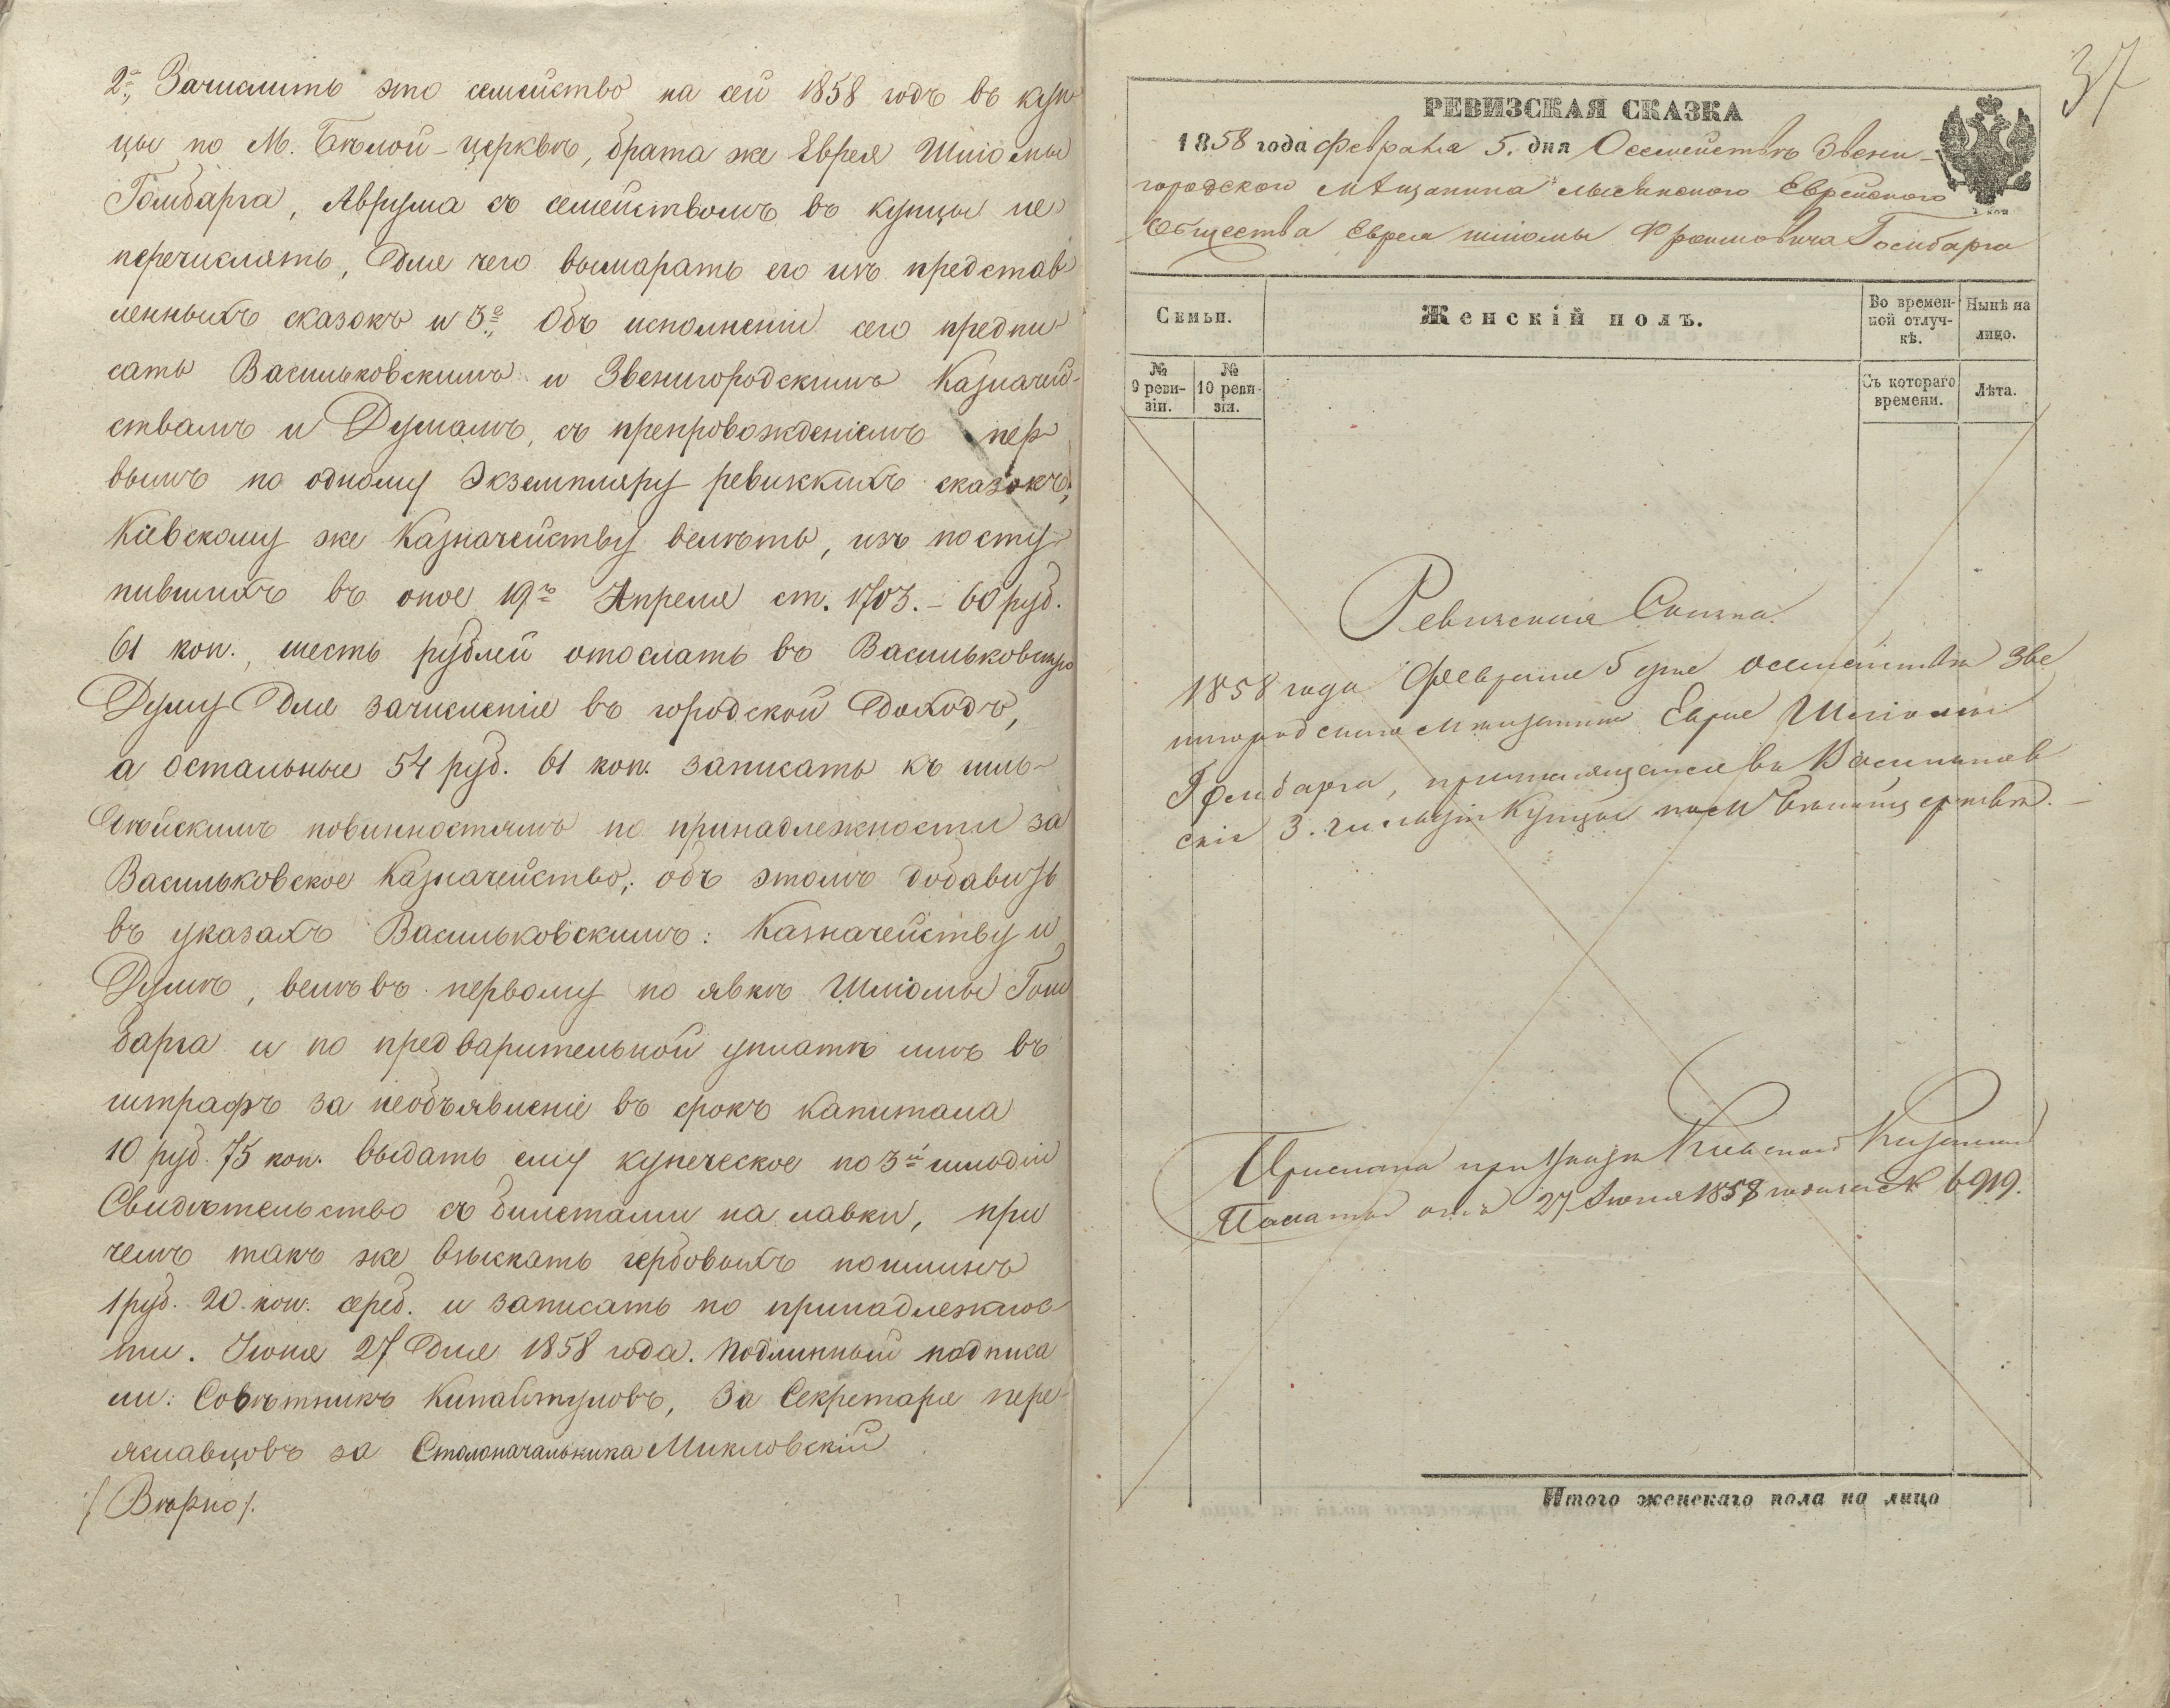 2е, Зачислить это семейство на сей 1858 годъ въ куп
цы по М. Бѣлой-церквѣ, брата же Еврея Шліомы
Гомбарга, Аврума съ семействомъ въ купцы не
перечислять, для чего вымарать его изъ представ
ленныхъ сказокъ и 3е, Объ исполненіи сего предпи
сать Васильковскимъ и Звенигородскимъ Казначей-
ствамъ и Думамъ, съ препровожденіемъ пер
вымъ по одному Экземпляру ревизкихъ сказокъ,
Кіевскому же Казначейству велѣть, изъ посту
пившихъ въ оное 19го Апреля ст. 1703. – 60 руб.
61 коп., шесть рублей отослать въ Васильковскую
Думу для зачисленія въ городской доходъ,
а остальные 54 руб. 61 коп. записать къ гиль-
дѣйскимъ повинностямъ по принадлежности за
Васильковское Казначейство; объ этомъ добавить
въ указахъ Васильковскимъ: Казначейству и
Думѣ, велѣвъ первому по явкѣ Шліомы Гом
барга и по предварительной уплатѣ имъ въ
штрафъ за необъявленіе въ срокъ капитала
10 руб. 75 коп. выдать ему купеческое по 3й гильдіи
Свидѣтельство съ билетами на лавки, при
чемъ такъ же взыскать гербовыхъ пошлинъ
1 руб. 20 коп. сереб. и записать по принадлежнос
ти. Іюня 27 дня 1858 года. Подлинный подписа
ли: Совѣтникъ За Секретаря Пере-
яславцовъ за Столоначальника Микловскій
/Вѣрно/.
37
РЕВИЗСКАЯ СКАЗКА
1858 года февраля 5. дня О семействѣ Звени-
городского мѣщанина Лысянского Еврейского
Общества Еврея Шліомы Гомбарга
Семьи.
Женскій полъ.
Во времен-
ной отлуч-
кѣ.
Нынѣ на
лицо.
№
9 реви-
зіи.
№
10 реви-
зіи.
Съ котораго
времени.
Лѣта.
Ревизская Сказка
1858 года Февраля 5 дня о семействѣ Зве
нигородского мѣщанина Еврея Шліомы
Гомбарга, причисляющагося въ Васильков
скіе 3. гильдіи Купцы по м Бѣлойцерквѣ. –
Прислана при Указѣ Кіевской Казенной
Палаты отъ 27 Іюня 1858 года за № 6919.
Итого женскаго пола на лицо